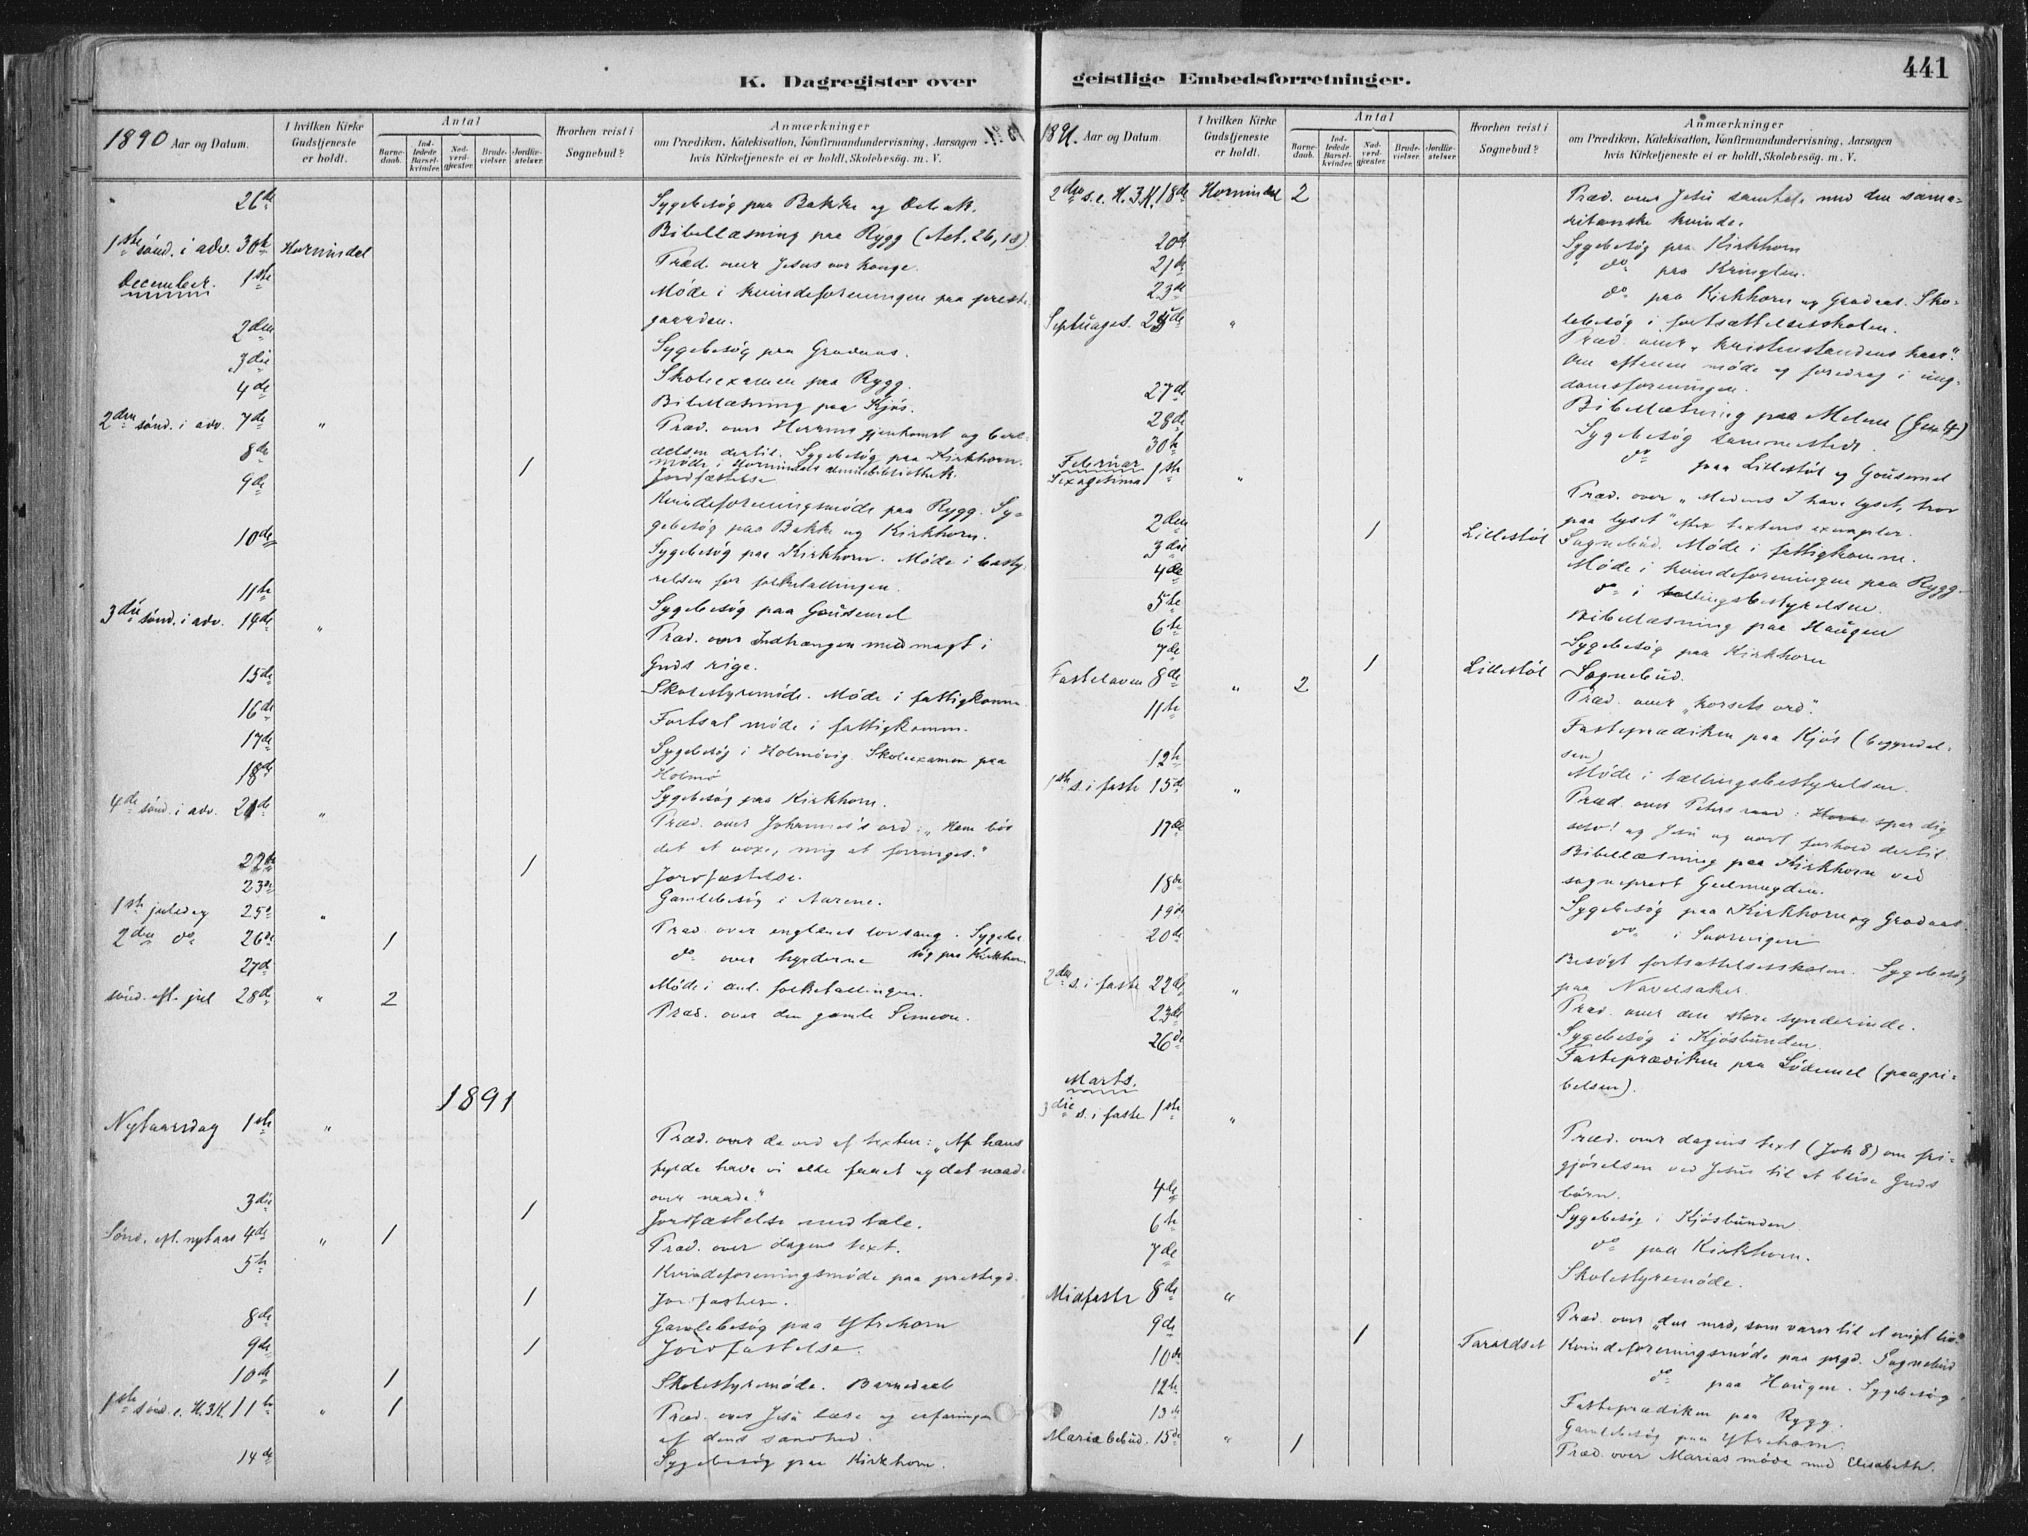 K. Dagregister over
1890 Aar og Datum.
I hvilken Kirke Gudstjeneste er holdt.
Antal
Barne-daab.
Ind-ledede Barsel-kvinder.
Nad-verd-gjester.
Brude-vielser.
Jordfæ-stelser.
Hvorhen reist i Sognebud?
Anmærkninger
om Prædiken, Katekisation, Konfirmandundervisning, Aarsagen
hvis Kirketjeneste ei er holdt, Skolebesøg. m. V.
26de Sygebesøg paa Bakke og
1ste sønd. i adv. 30te Hornindal Bibellæsning paa Rygg (Act. 26,18)
Præd. over Jesus vor konge.
December. 1ste Møde i kvindeforeningen paa preste
gaarden.
2den Sygebesøg paa Grodaas.
3die Skoleexamen paa Rygg.
4de Bibellæsning paa Kjøs.
2den sønd. i adv. 7de " Præd. over Herrens gjenkomst og bere-
delsen dertil. Sygebesøg paa Kirkhorn.
møde i Hornindals almuebibliothek.
8de 1 Jordfæstelse
9de Kvindeforeningsmøde paa Rygg. Sy-
gebesøg paa Bakke og Kirkhorn.
10de Sygebesøg paa Kirkhorn. Møde i besty-
relsen for folketællingen.
11te Sygebesøg paa Gousemel
3die sønd. i adv. 14de " Præd. over Indtrængen med magt i
Guds rige.
15de Skolestyremøde. Møde i fattigkomm.
16de Fortsat møde i fattigkomm.
17de Sygebesøg i Holmøvig. Skoleexamen paa
Holmø
18de Sygebesøg paa Kirkhorn.
4de sønd. i adv. 21de " Præd. over Johannes's ord: "Ham bør
det at voxe, mig at forringes."
22de 1 Jordfæstelse.
23de Gamlebesøg i Navene.
1ste juledag 25de " Præd. over englenes lovsang. Sygebe-
2den do 26de 1 do over hyrderne søg paa Kirkhorn
27de Møde i anl. folketællingen.
sønd. eft. jul 28de " 2 Præd. over den gamle Simeon.
1891
Nytaarsdag 1ste " Præd. over de ord af texten: "Af hans
fylde have vi alle faaet og det naade
over naade."
3die 1 Jordfæstelse med tale.
Sønd. eft. nytaar 4de " 1 Præd. over dagens text.
5te Kvindeforeningsmøde paa prestegd.
1 Jordfæstelse.
8de Gamlebesøg paa Ytrehorn
9de 1 Jordfæstelse.
10de 1 Skolestyremøde. Barnedaab
1ste sønd. e. H.3K. 11te " 1 Præd. over Jesu lære og erfaringen
af dens sandhed.
14de Sygebesøg paa Kirkhorn.
geistlige Embedsforretninger.
441
1891. Aar og Datum.
I hvilken Kirke Gudstjeneste er holdt.
Antal
Barne-daab.
Ind-ledede Barsel-kvinder.
Nad-verd-gjester.
Brude-vielser.
Jordfæ-stelser.
Hvorhen reist i Sognebud?
Anmærkninger
om Prædiken, Katekisation, Konfirmandundervisning, Aarsagen
hvis Kirketjeneste ei er holdt, Skolebesøg. m. V.
2den s. e. H.3K. 18de Hornindal 2 Præd. over Jesu samtale med den sama-
ritanske kvinde.
20de Sygebesøg paa Kirkhorn
21de do paa Kringlen.
23de do paa Kirkhorn og Grodaas. Sko-
lebesøg i fortsættelsesskolen.
Septuages. 25de " Præd. over "kristenstandens kaar".
Om aftenen møde og foredrag i ung-
domsforeningen.
27de Bibellæsning paa Melem
28de Sygebesøg sammesteds.
30te do paa Lillestøl og Gousemel
Februar
Sexagesima 1ste " Præd. over "Medens I have lyset, tror
paa lyset" efter textens exempler.
2den 1 Lillestøl Sognebud. Møde i fattigkomm.
3die Møde i kvindeforeningen paa Rygg.
4de do i tællingsbestyrelsen.
5te Bibellæsning paa Haugen
6te Sygebesøg paa Kirkhorn
7de 1 Lillestøl Sognebud.
Fastelaven 8de " 2 Præd. over "korsets ord".
11te Fasteprædiken paa Kjøs (begyndel-
sen)
12te Møde i tællingsbestyrelsen.
1ste s. i faste 15de " Præd. over Peters raad: spar dig
selv! og Jesu og vort forhold dertil.
17de Bibellæsning paa Kirkhorn ved
sogneprest Geelmuyden.
18de Sygebesøg paa Kirkhorn og Grodaas.
19de do i
20de Besøgt fortsættelsesskolen. Sygebesøg
paa Navelsaker.
2den s. i faste 22de " Præd. over den store synderinde.
23de Sygebesøg i Kjøsbunden.
26de Fasteprædiken paa Lødemel (paagri-
belsen).
Marts.
3die s. i faste 1ste " Præd. over dagens text (Joh 8) om fri-
gjørelsen ved Jesus til at blive Guds
børn.
4de Sygebesøg i Kjøsbunden.
6te do paa Kirkhorn.
7de Skolestyremøde.
Midfaste 8de " Præd. over "den mad, som varer til et evigt liv".
9de 1 Taraldset Kvindeforeningsmøde paa prgd. Sognebud
10de do paa Haugen. Sygebesøg
12te Fasteprædiken paa Rygg.
13de Gamlebesøg paa Ytrehorn.
Mariæ bebud. 15de " 1 Præd. over Marias møde med Elisabeth.